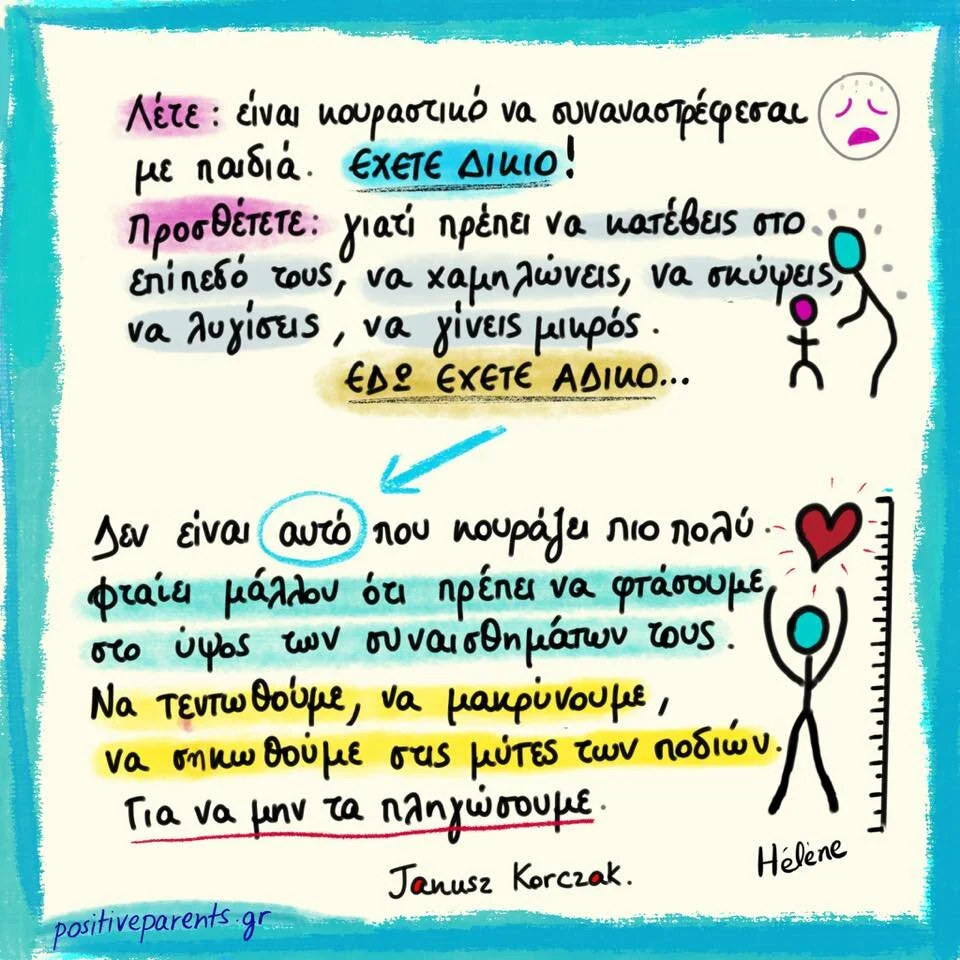 Λέτε: είναι κουραστικό να συναναστρέφεσαι
με παιδιά. ΕΧΕΤΕ ΔΙΚΙΟ!
Προσθέτετε: γιατί πρέπει να κατέβεις στο
επίπεδό τους, να χαμηλώνεις, να σκύψεις,
να λυγίσεις, να γίνεις μικρός.
ΕΔΩ ΕΧΕΤΕ ΑΔΙΚΟ...
Δεν είναι αυτό που κουράζει πιο πολύ.
φταίει μάλλον ότι πρέπει να φτάσουμε
στο ύψος των συναισθημάτων τους.
Να τεντωθούμε, να μακρύνουμε,
να σηκωθούμε στις μύτες των ποδιών.
Για να μην τα πληγώσουμε.
Hélène
Janusz Korczak.
positiveparents.gr